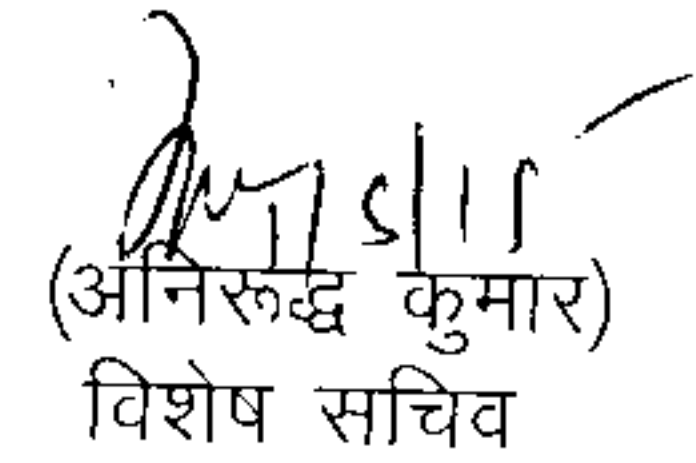 (अनिरूद्ध कुमार)
विशेष सचिव